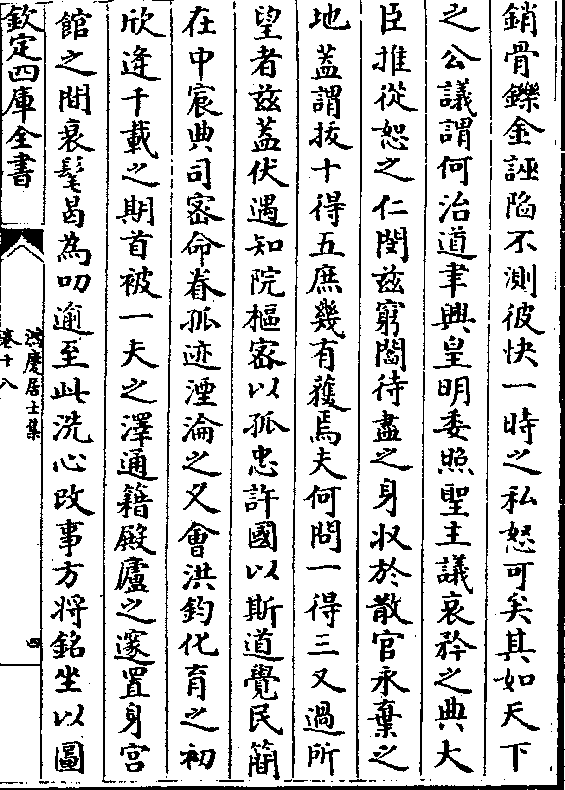 銷骨鑠金誣陷不測彼快一時之私怒可矣其如天下
之公議謂何治道聿興皇明委照聖主議哀矜之典大
臣推從恕之仁閔茲窮閻待盡之身収於散官永棄之
地蓋謂拔十得五庶幾有獲焉夫何問一得三又過所
望者兹蓋伏遇知院樞宻以孤忠許國以斯道覺民簡
在中宸典司宻命眷孤迹湮淪之久會洪鈞化育之初
欣逢千載之期首被一夫之澤通籍殿廬之邃置身宮
館之間衰髦曷為叨逾至此洗心改事方將銘坐以圖
欽定四庫全書
鴻慶居士集
卷十八
四